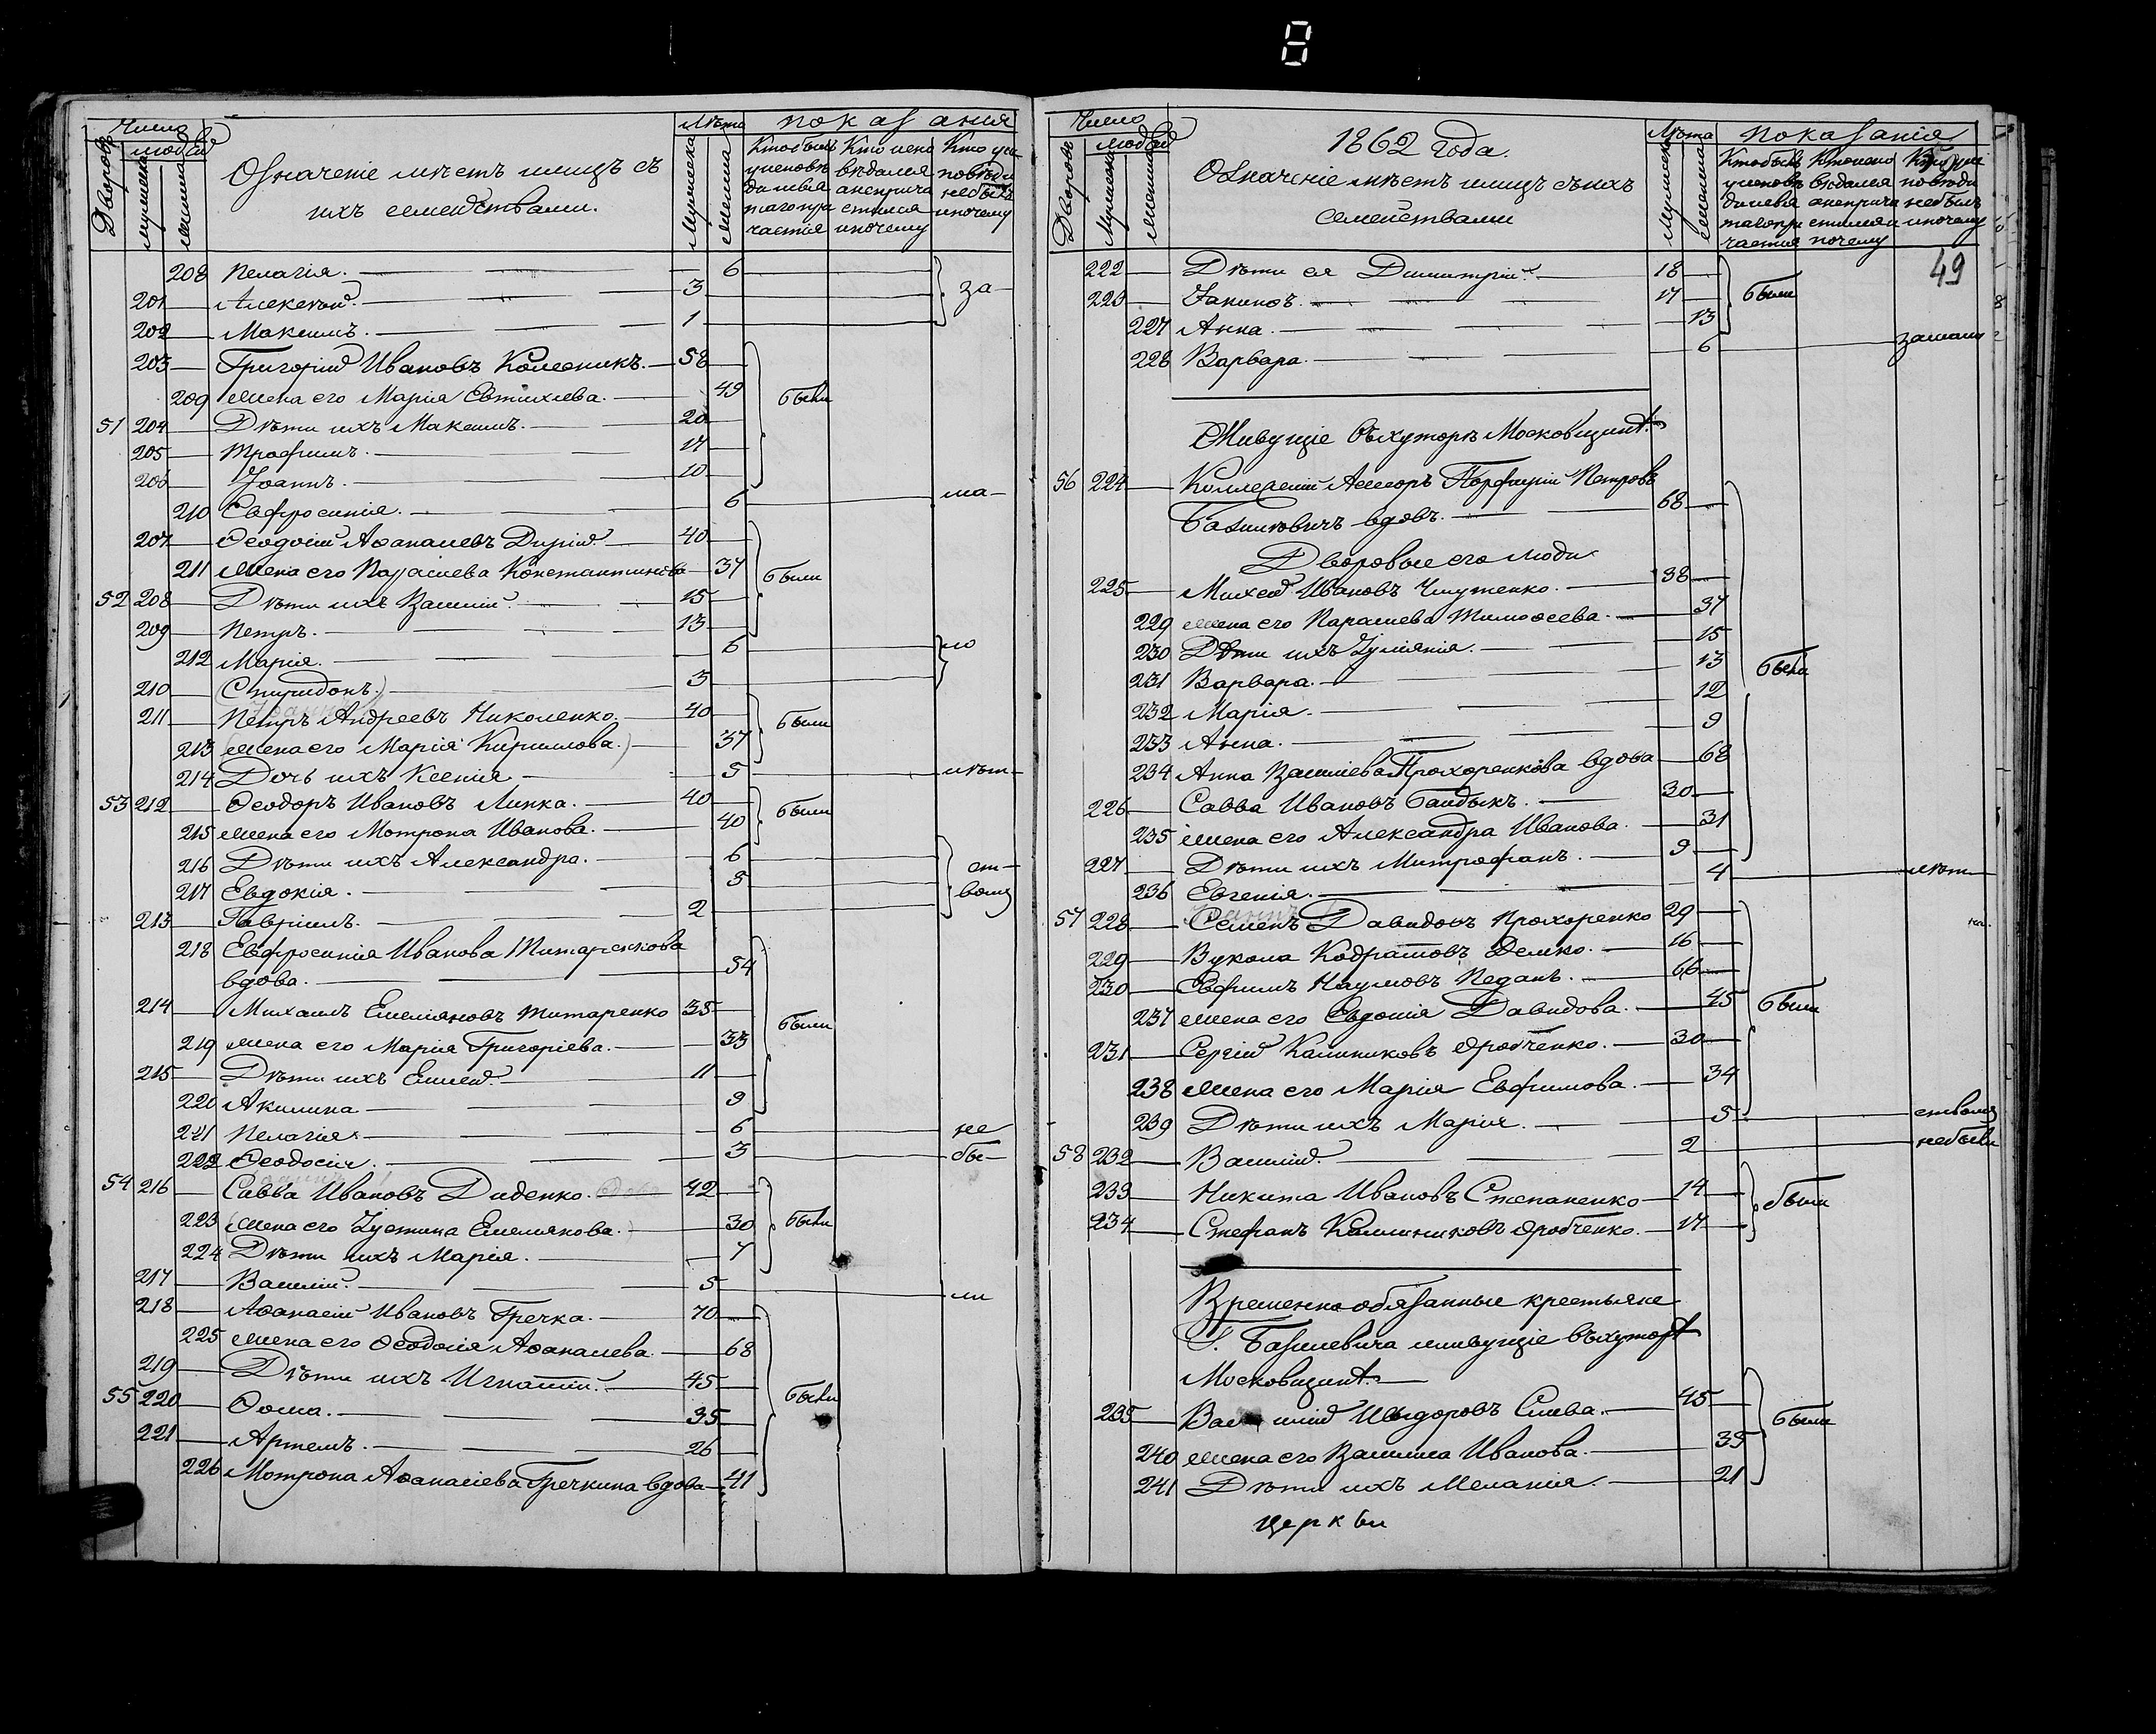 Число
Людей
Дворовъ
мужеска
женска
Означеніе мѣстъ и лицъ съ
ихъ семействами.
Лѣта
Мужеска
женска
показания
208 Пелагія. 6
201 Алексѣй. 3 за-
202 Максимъ. 1
203 Григорій Ивановъ Колесникъ. 58
209 жена его Марія Евтихіева. 49 были
51 204 Дѣти ихъ Максимъ. 20
205 Трофимъ. 17
206 Іоаннъ. 10
210 Евфросинія. 6 ма-
207 Ѳеодосій Аѳанасіевъ 40
211 жена его Параскева Константинова 37 были
52 208 Дѣти ихъ Василій. 15
209 Петръ. 13
212 Марія. 6 ло
210 Спиридонъ. 3
211 Петръ Андреевъ Николенко. 40 были
213 (жена его Марія Кирилова.) 37
214 Дочь ихъ Ксенія 5 лѣт-
53 212 Ѳеодоръ Ивановъ Линка. 40 были
215 жена его Мотрона Иванова. 40
216 Дѣти ихъ Александра. 6 ст-
217 Евдокія. 3 вомъ
213 Гавріилъ. 2
218 Евфросинія Иванова Титаренкова
вдова. 54
214 Михаилъ Емеліановъ Титаренко 35 были
219 жена его Марія Григоріева. 33
215 Дѣти ихъ Елисей. 11
220 Акилина 9
221 Пелагія 6 не
222 Ѳеодосія. 3 бы-
54 216 Савва Ивановъ Диденко. 42
223 (жена его Іустина Емеліанова.) 30 были
224 Дѣти ихъ Марія. 7
217 Василій. 5 ли
218 Аѳанасій Ивановъ Гречка. 70
225 жена его Ѳеодосія Аѳанасіева. 68
219 Дѣти ихъ Игнатій. 45
55 220 Ѳома. 35 были
221 Артемъ. 26
226 Мотрона Аѳанасіева Гречкина вдова 41
Число
Людей
Дворовъ
Мужеска
женска
1862 года.
Означеніе мѣстъ и лицъ съ ихъ
семействами
Лѣта
Мужеска
женска
показанія
49
222 Дѣти ея Димитрій. 18
223 Іакинѳъ. 17 были
227 Анна. 13
228 Варвара. 6 замало
Живущіе въ хуторѣ Московщинѣ.
56 224 Коллежскій Асессоръ Порфирій Петровъ
Базилевичъ вдовъ. 68
Дворовые его люди
225 Михей Ивановъ 38
229 жена его Параскева Тимоѳеева. 37
230 Дѣти ихъ Іуліянія. 15
231 Варвара. 13 были
232 Марія. 12
233 Анна. 9
234 Анна Василіева Прохоренкова вдова 68
226 Савва Ивановъ Бандыкъ. 30
235 жена его Александра Иванова. 31
227 Дѣти ихъ Митрофанъ. 9
236 Евгенія. 4 лѣт
57 228 Семенъ Давидовъ Прохоренко 29
229 Вукола Кодратовъ Демко. 16
230 Евфимъ Наумовъ Педанъ. 66
237 жена его Евдокія Давидова. 45 были
231 Сергій Калиниковъ Дробченко. 30
238 жена его Марія Евфимова. 34
239 Дѣти ихъ Марія. 5 ствомъ
58 232 Василій. 2 небыли
233 Никита Ивановъ Степаненко 14 были
234 Стефанъ Калиниковъ Дробченко. 17
Временно обязанные крестьяне
Г. Базилевича живущіе въ хуторѣ
Московщинѣ.
235 Василій Исидоровъ Слива. 45 были
240 жена его Василиса Иванова. 35
241 Дѣти ихъ Меланія. 21
церкви